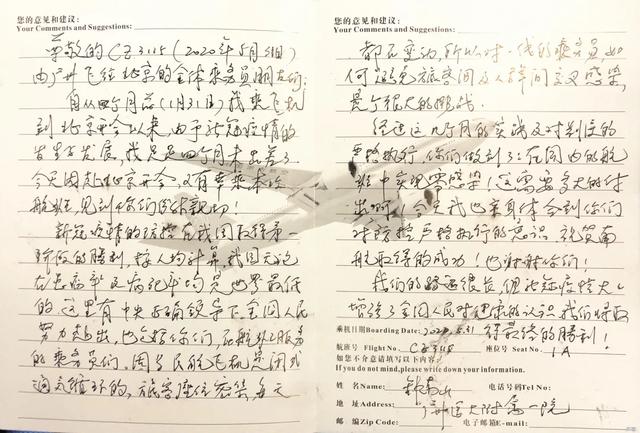 您的意见和建议:
Your Comments and Suggestions:
尊敬的CZ3115(2020年5月31日)
由广州飞往北京的全体乘务员朋友们:
自从四个月前(1月31日)我乘飞机
到北京开会以来,由于新冠疫情的
发生发展,我足足四个月未出差了
今天因赴北京开会,又有幸乘本次
航班,见到你们倍感亲切!
新冠疫情的防控在我国取得第一
阶段的胜利,按人均计算我国无论
在患病率及病死率均是世界最低
的,这里有中央正确领导下,全国人民
努力付出,也包括你们,在航班上服务
的乘务员们。因为民航飞机是闭式
通气循环的,旅客座位密集,每天
您的意见和建议:
Your Comments and Suggestions:
都在变动,所以对一线的乘务员,如
何避免旅客间及人群间交叉感染,
是个很大的挑战。
经过这几个月的实践及对制度的
严格执行,你们做到了:在国内的航
班中实现零感染!这需要多大的付
出啊!今天我也亲身体会到你们
对防控严格执行的意识,祝贺南
航取得的成功!也谢谢你们!
我们的路还很长,但新冠疫情大大
增强了全国人民对健康的认识,我们将取
乘机日期Boarding Date: 2020.5.31 得最终的胜利!
航班号 Flight No. CZ3115 座位号 Seat No. 1A
如您不介意请填写以下内容:
If you do not mind,please write down your information.
姓 名Name: 钟南山 电话号码Tel No:
地 址Address: 广州医大附属一院
邮 编Zip Code: 电子邮箱E-mail: